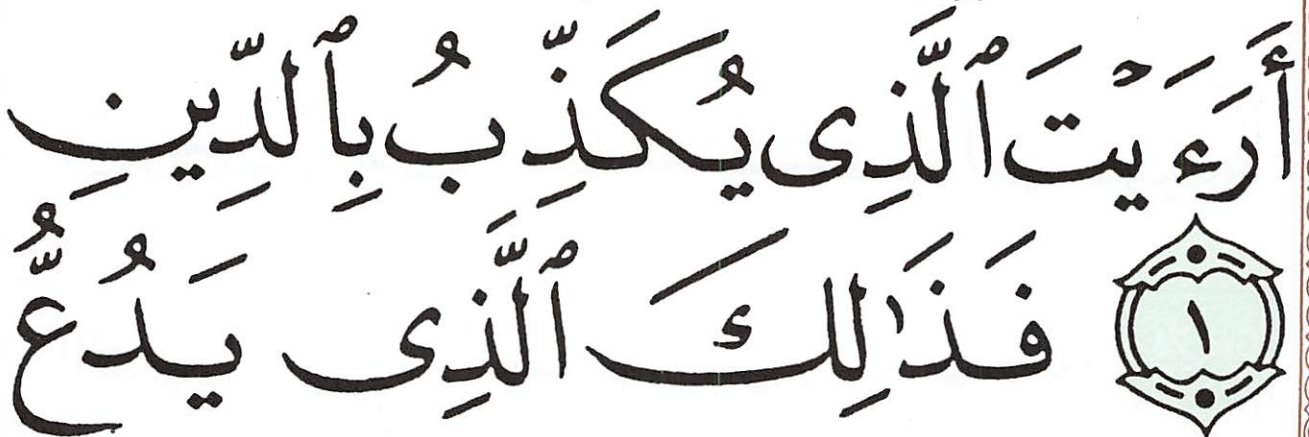 أَرَءَيْتَ ٱلَّذِى يُكَذِّبُ بِٱلدِّينِ
١ فَذَٰلِكَ ٱلَّذِى يَدُعُّ